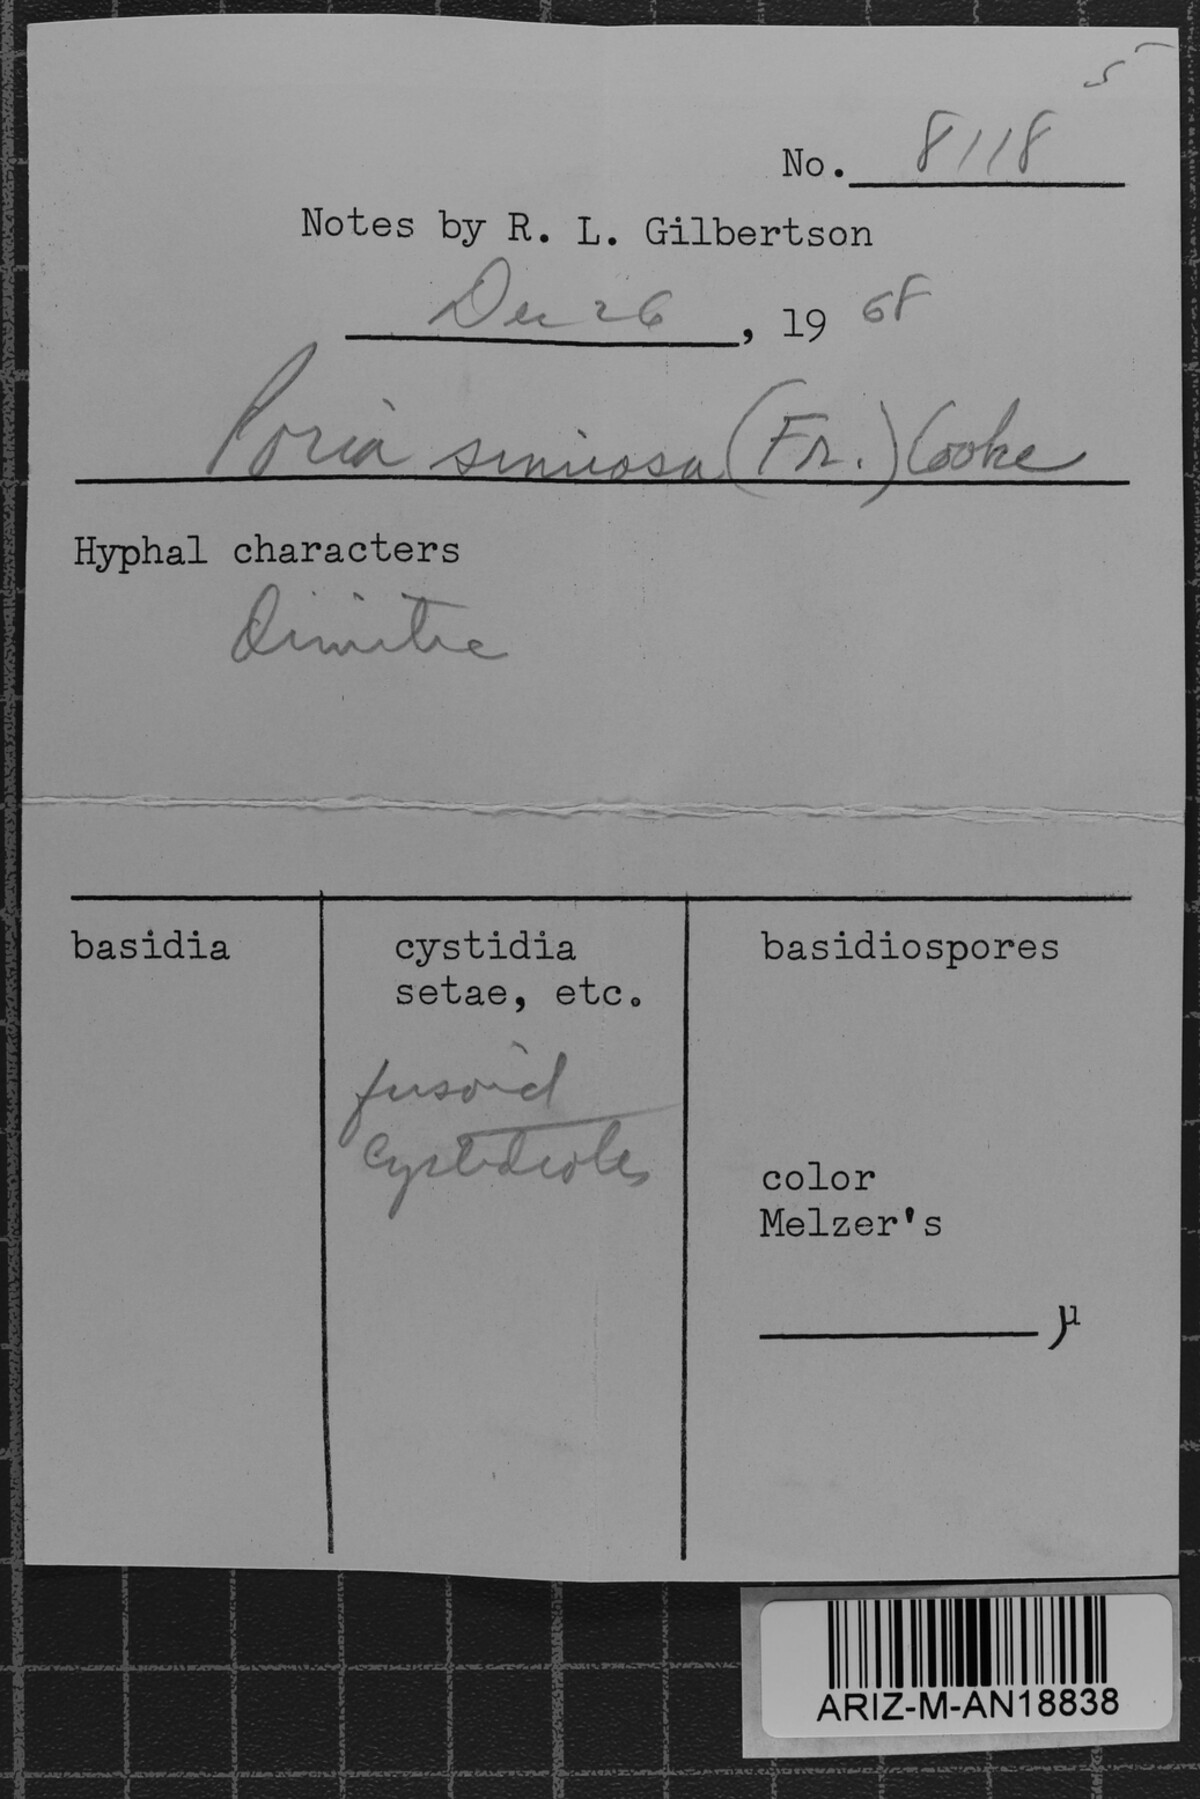 5
No. 8118
Notes by R. L. Gilbertson
Dec 26, 19 68
Poria sinuosa (Fr.) Cooke
Hyphal characters
Dimitic
basidia
cystidia
setae, etc.
fusoid
cystidioles
basidiospores
color
Melzer's
µ
ARIZ-M-AN18838